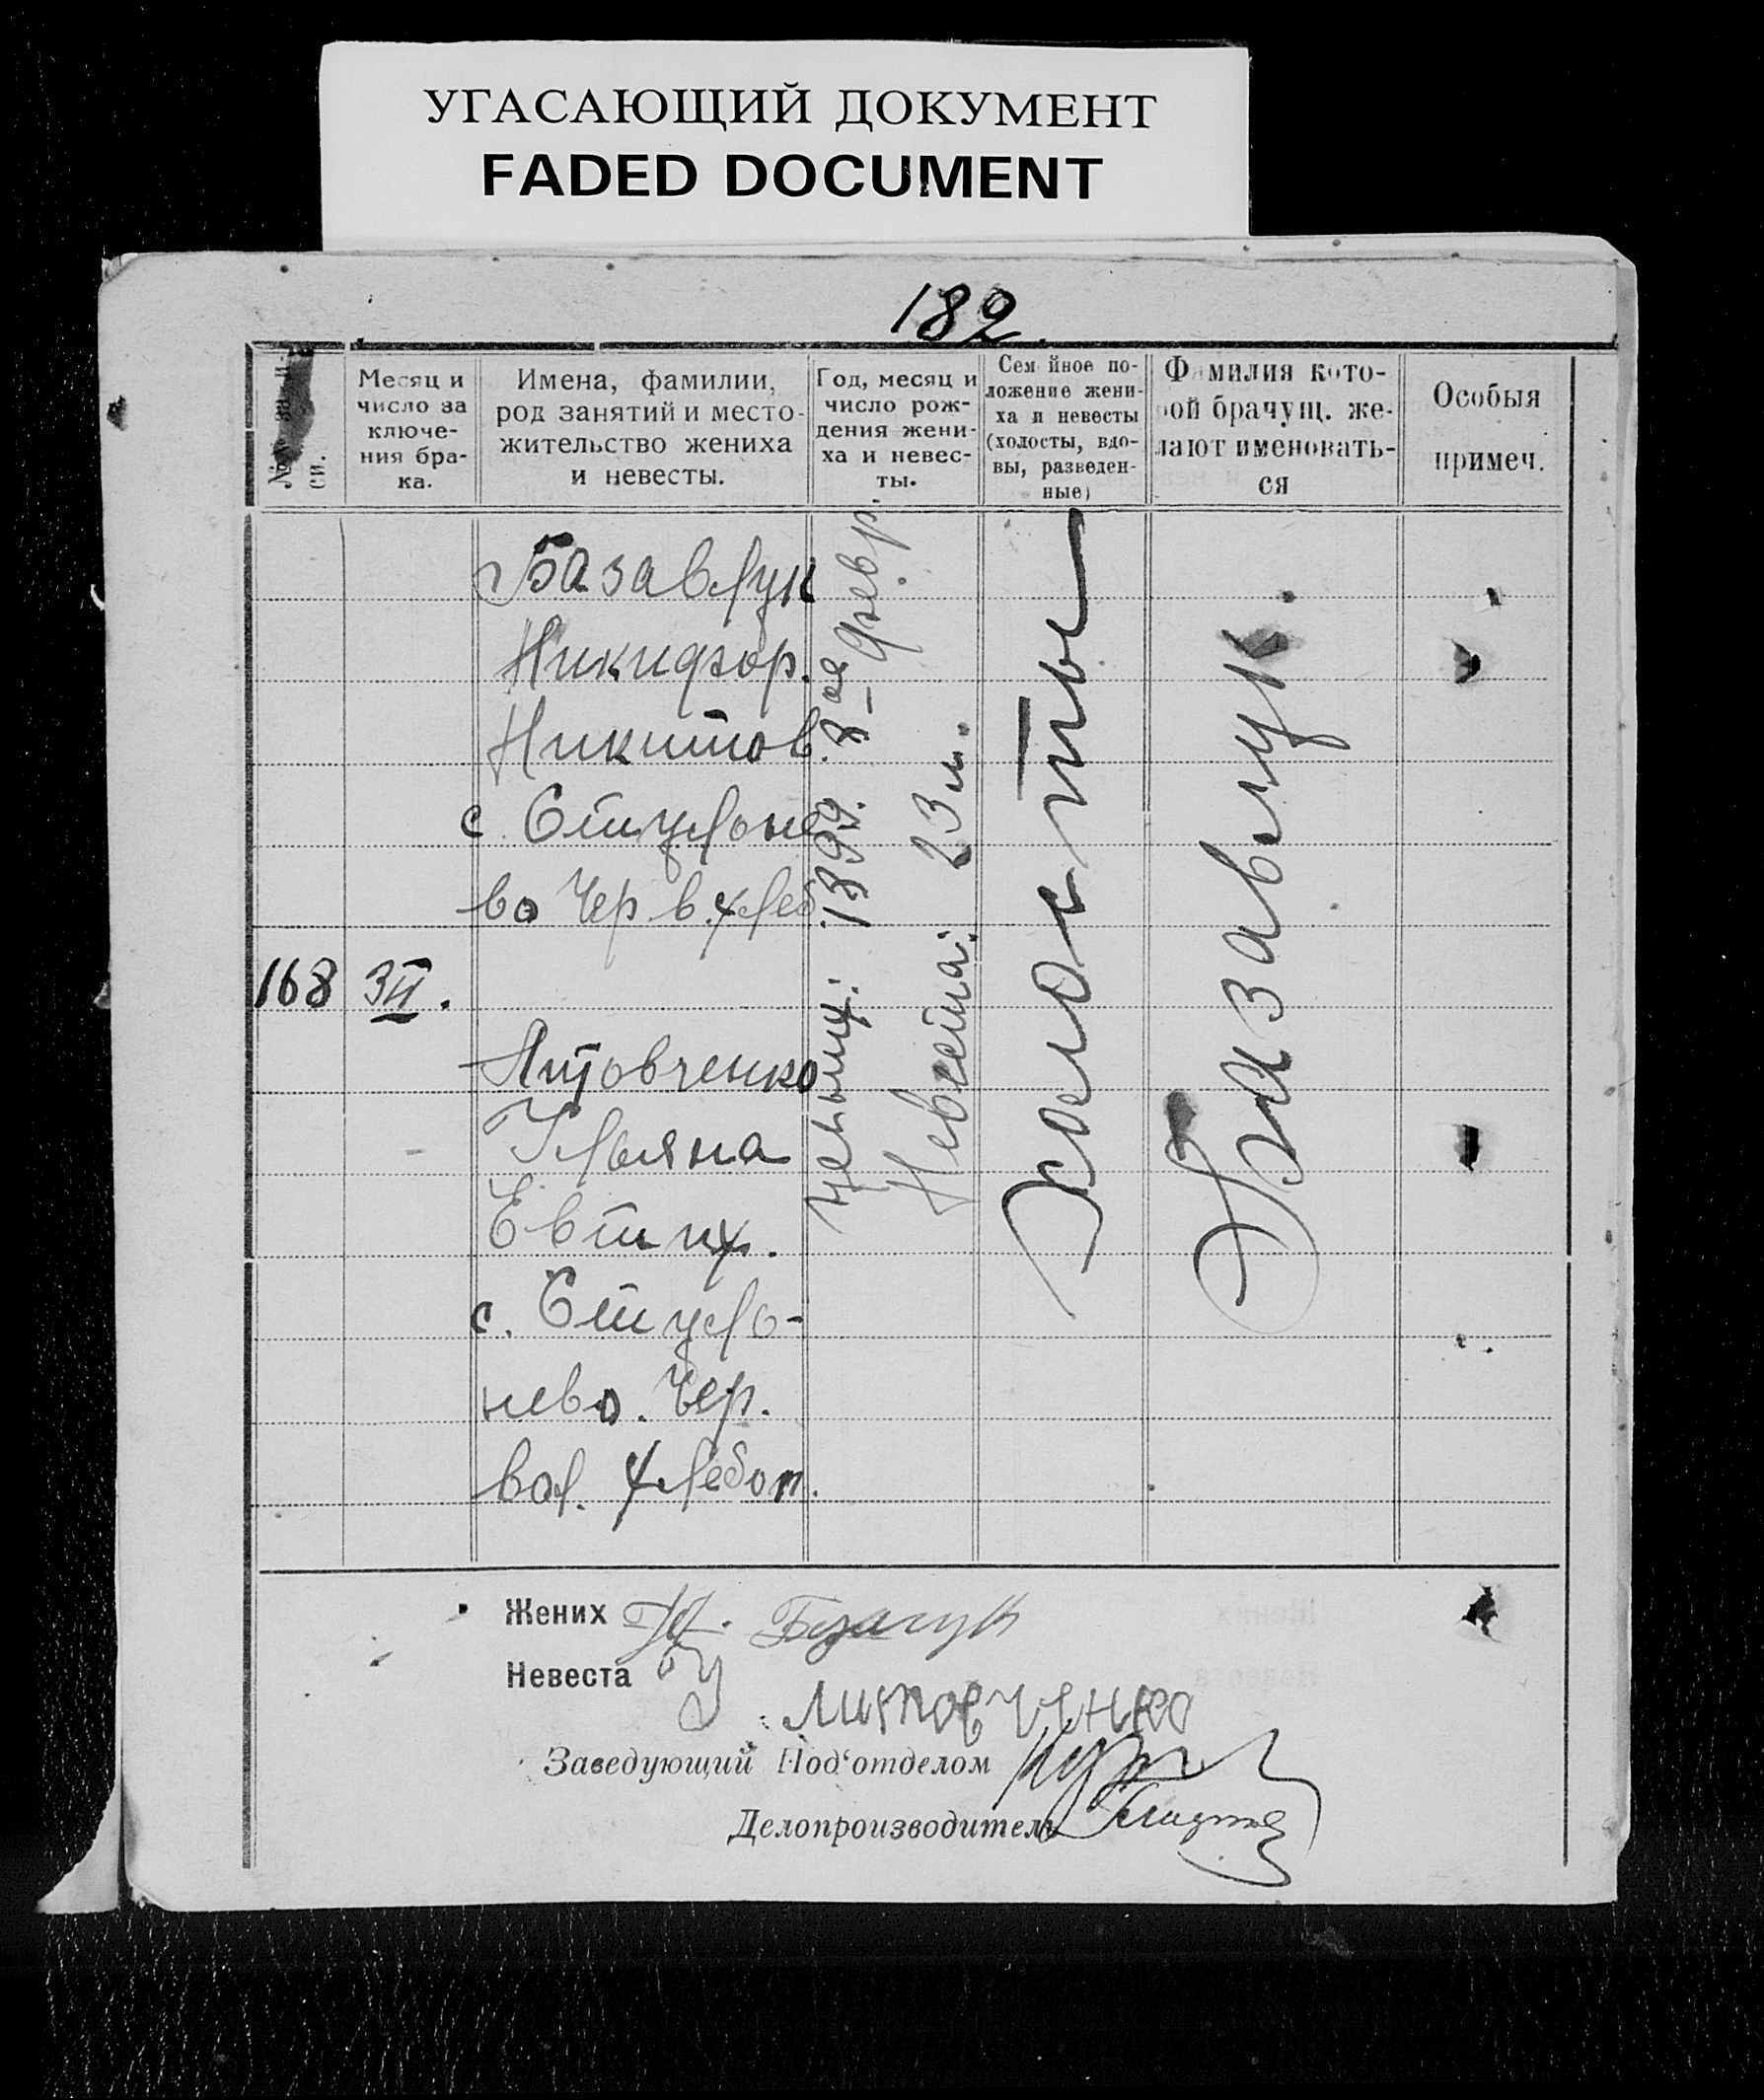 УГАСАЮЩИЙ ДОКУМЕНТ
FADED DOCUMENT
182.
Месяц и
число за
ключе-
ния бра-
ка.
Имена, фамилии,
род занятий и место-
жительство жениха
и невесты.
Год, месяц и
число рож-
дения жени-
ха и невес-
ты.
Сем йное по-
ложение жени-
ха и невесты
(холосты, вдо-
вы, разведен-
ные)
Фамилия кото-
рой брачущ. же-
лают именовать-
ся
Особыя
примеч.
168
3 II.
Базавлук
Никифор.
Никитов.
с. Стулоне
во Чер в. хлеб.
Литовченко
Ульяна
Евтих.
с. Стуло-
нево. Чер.
вол. хлебоп.
1899. 8-ое февр.
Невеста: 23 л.
Холосты
Базавлук.
Жених
Невеста У
Литовченко
Заведующий Под‘отделом
Делопроизводитель